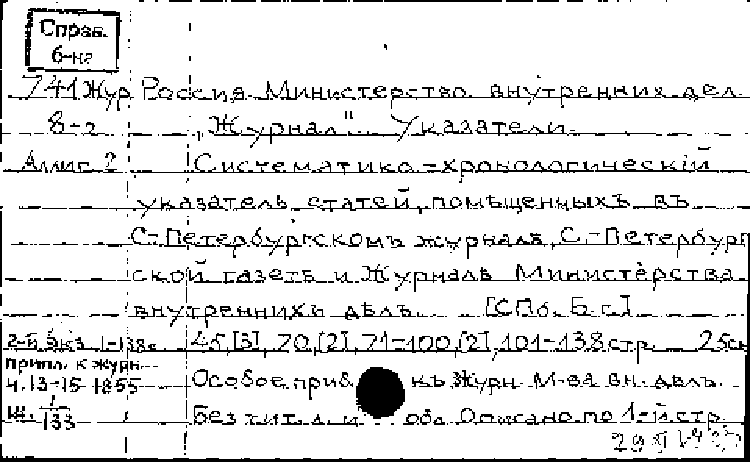 Справ.
б-ка
741 Жур Россия. Министерство внутренних дел.
8-2 „Журнал". Указатели.
Аллиг. 2 Систематико-хронологическій
указатель статей, помѣщенныхъ въ
С.-Петербургскомъ журналѣ, С.-Петербург
ской газетѣ и Журналѣ Министерства
внутреннихъ дѣлъ. [СПб. Б.г.]
2-й экз. 1-138с. 45,[3], 70,[2], 71-100,[2],101-138 стр. 25см
прилж. к журн. Особое приб. къ Журн. М-ва вн. дѣлъ.
ч.13-15 1855
Без тит. л. и обл. Описано по 1-й стр.
133
29